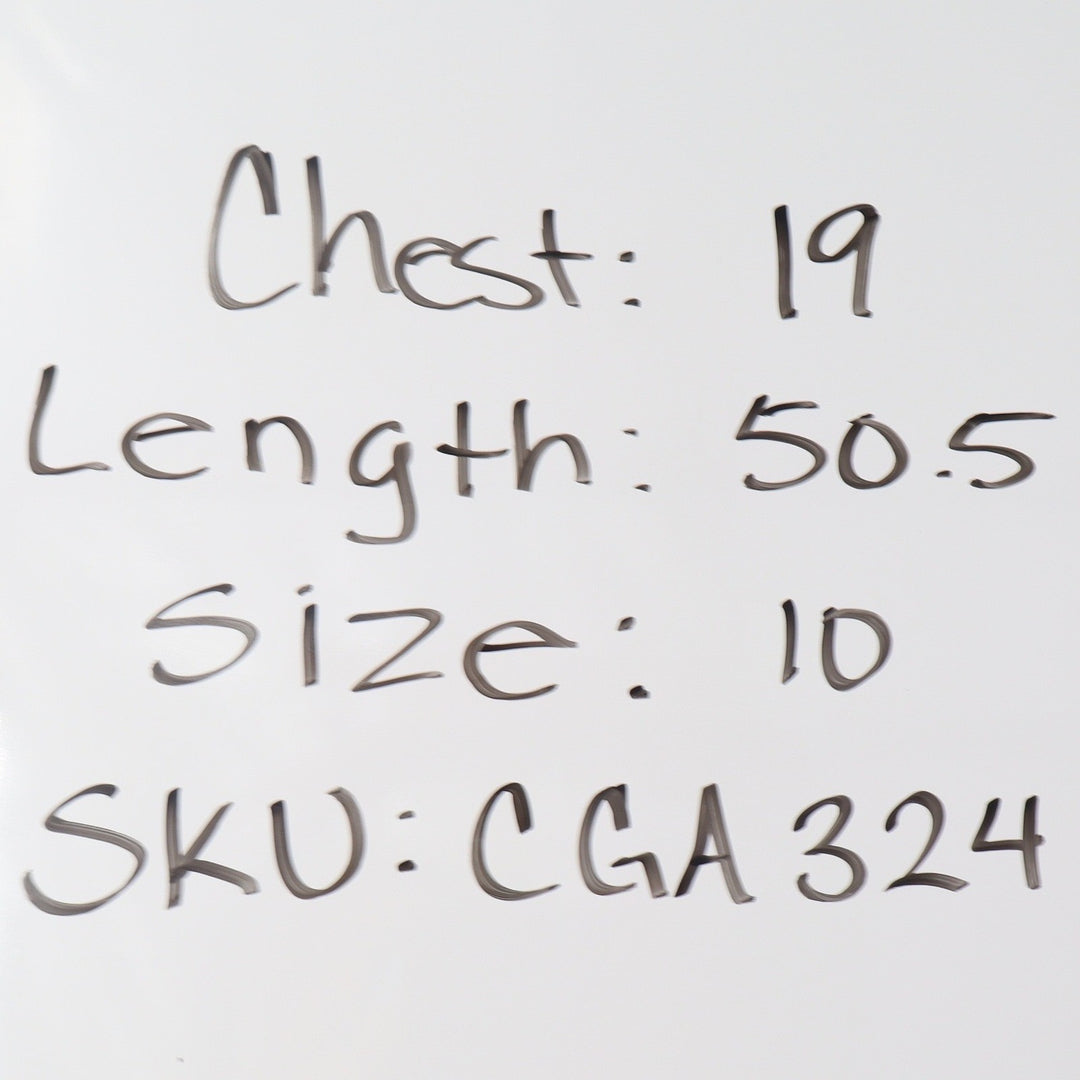 Chest: 19
Length: 50.5
Size: 10
SKU: CGA324